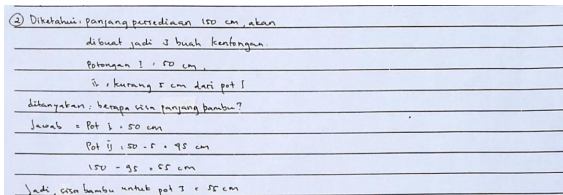 ② Diketahui : panjang persediaan 150 cm, akan
dibuat jadi 3 buah kentongan.
Potongan I = 50 cm,
ij = kurang 5 cm dari pot I
ditanyakan : berapa sisa panjang bambu?
Jawab = Pot I = 50 cm
Pot ij = 50 - 5 = 45 cm
150 - 95 = 55 cm
Jadi, sisa bambu untuk pot 3 = 55 cm